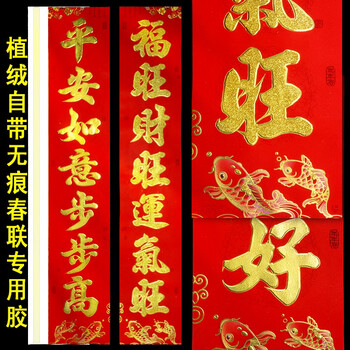 植绒自带无痕春联专用胶
福旺财旺運氣旺
平安如意步步高
氣旺
好